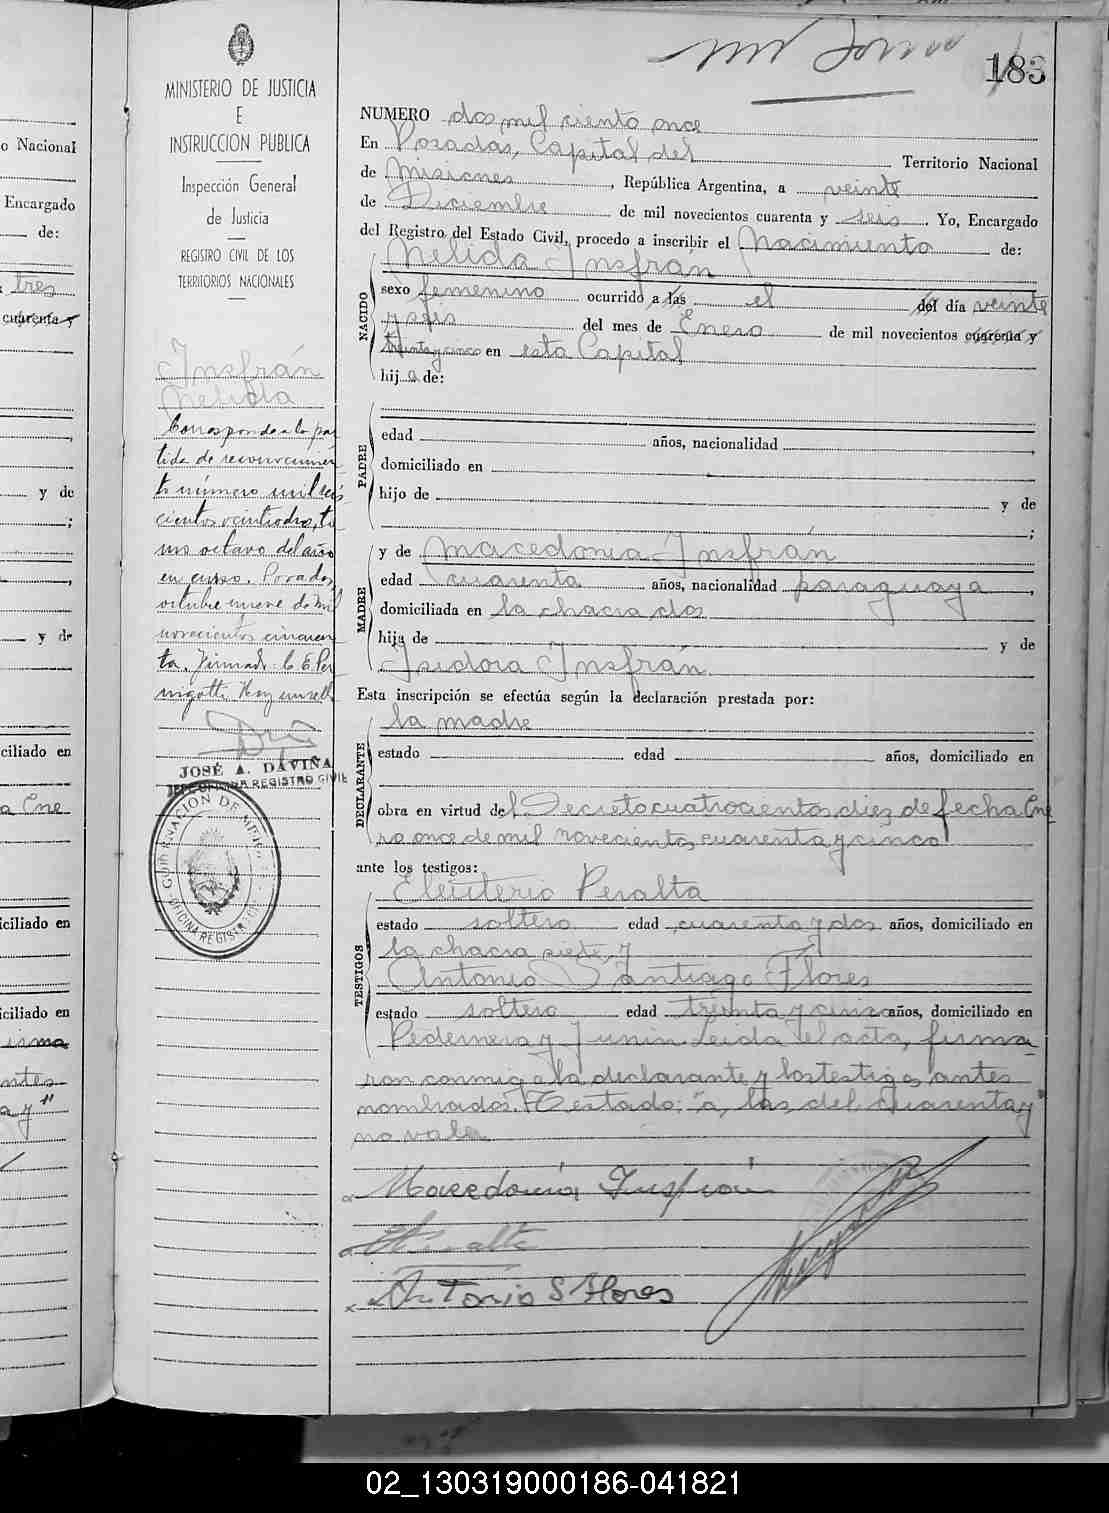 183
MINISTERIO DE JUSTICIA
E
INSTRUCCION PUBLICA
Inspección General
de Justicia
REGISTRO CIVIL DE LOS
TERRITORIOS NACIONALES
NUMERO dos mil ciento once
En Posadas, Capital del Territorio Nacional
de Misiones, República Argentina, a veinte
de Diciembre de mil novecientos cuarenta y seis. Yo, Encargado
del Registro del Estado Civil, procedo a inscribir el Nacimiento de:
NACIDO
Nelida Insfrán
sexo femenino ocurrido a las el del día veinte
y seis del mes de Enero de mil novecientos cuarenta y
treinta y cinco en esta Capital
hija de:
PADRE
edad años, nacionalidad
domiciliado en
hijo de y de
;
MADRE
y de Macedonia Insfrán
edad cuarenta años, nacionalidad paraguaya,
domiciliada en la chacra dos
hija de y de
Isidora Insfrán
Esta inscripción se efectúa según la declaración prestada por:
DECLARANTE
la madre
estado edad años, domiciliado en
obra en virtud del Decreto cuatrocientos diez de fecha Ene
ro once de mil novecientos cuarenta y cinco
ante los testigos:
TESTIGOS
Eleuterio Peralta
estado soltero edad cuarenta y dos años, domiciliado en
la chacra siete, y
Antonio Santiago Flores
estado soltero edad treinta y cinco años, domiciliado en
Pedernera y Junin Leida el acta, firma-
ron conmigo la declarante y los testigos antes
nombrados. Testado: "a, las, del, cuarenta y"
no vale
Macedonia Insfrán
Antonio S Flores
Insfrán
Nelida
Corresponde a la par
tida de reconocimien
to número mil seis
cientos veintiodos, to
mo octavo del año
en curso. Posadas,
octubre nueve de mil
novecientos cincuen
ta. Firmado: C. E. Pe
rugotti Hay un sello
JOSÉ A. DAVIÑA
JEFE OFICINA REGISTRO CIVIL
GOBERNACIÓN DE MISIONES
OFICINA REGISTRO CIVIL
o Nacional
Encargado
de:
tres
cuarenta y
y de
;
y de
ciliado en
a Ene
iciliado en
iciliado en
firma
antes
a y"
02_130319000186-041821